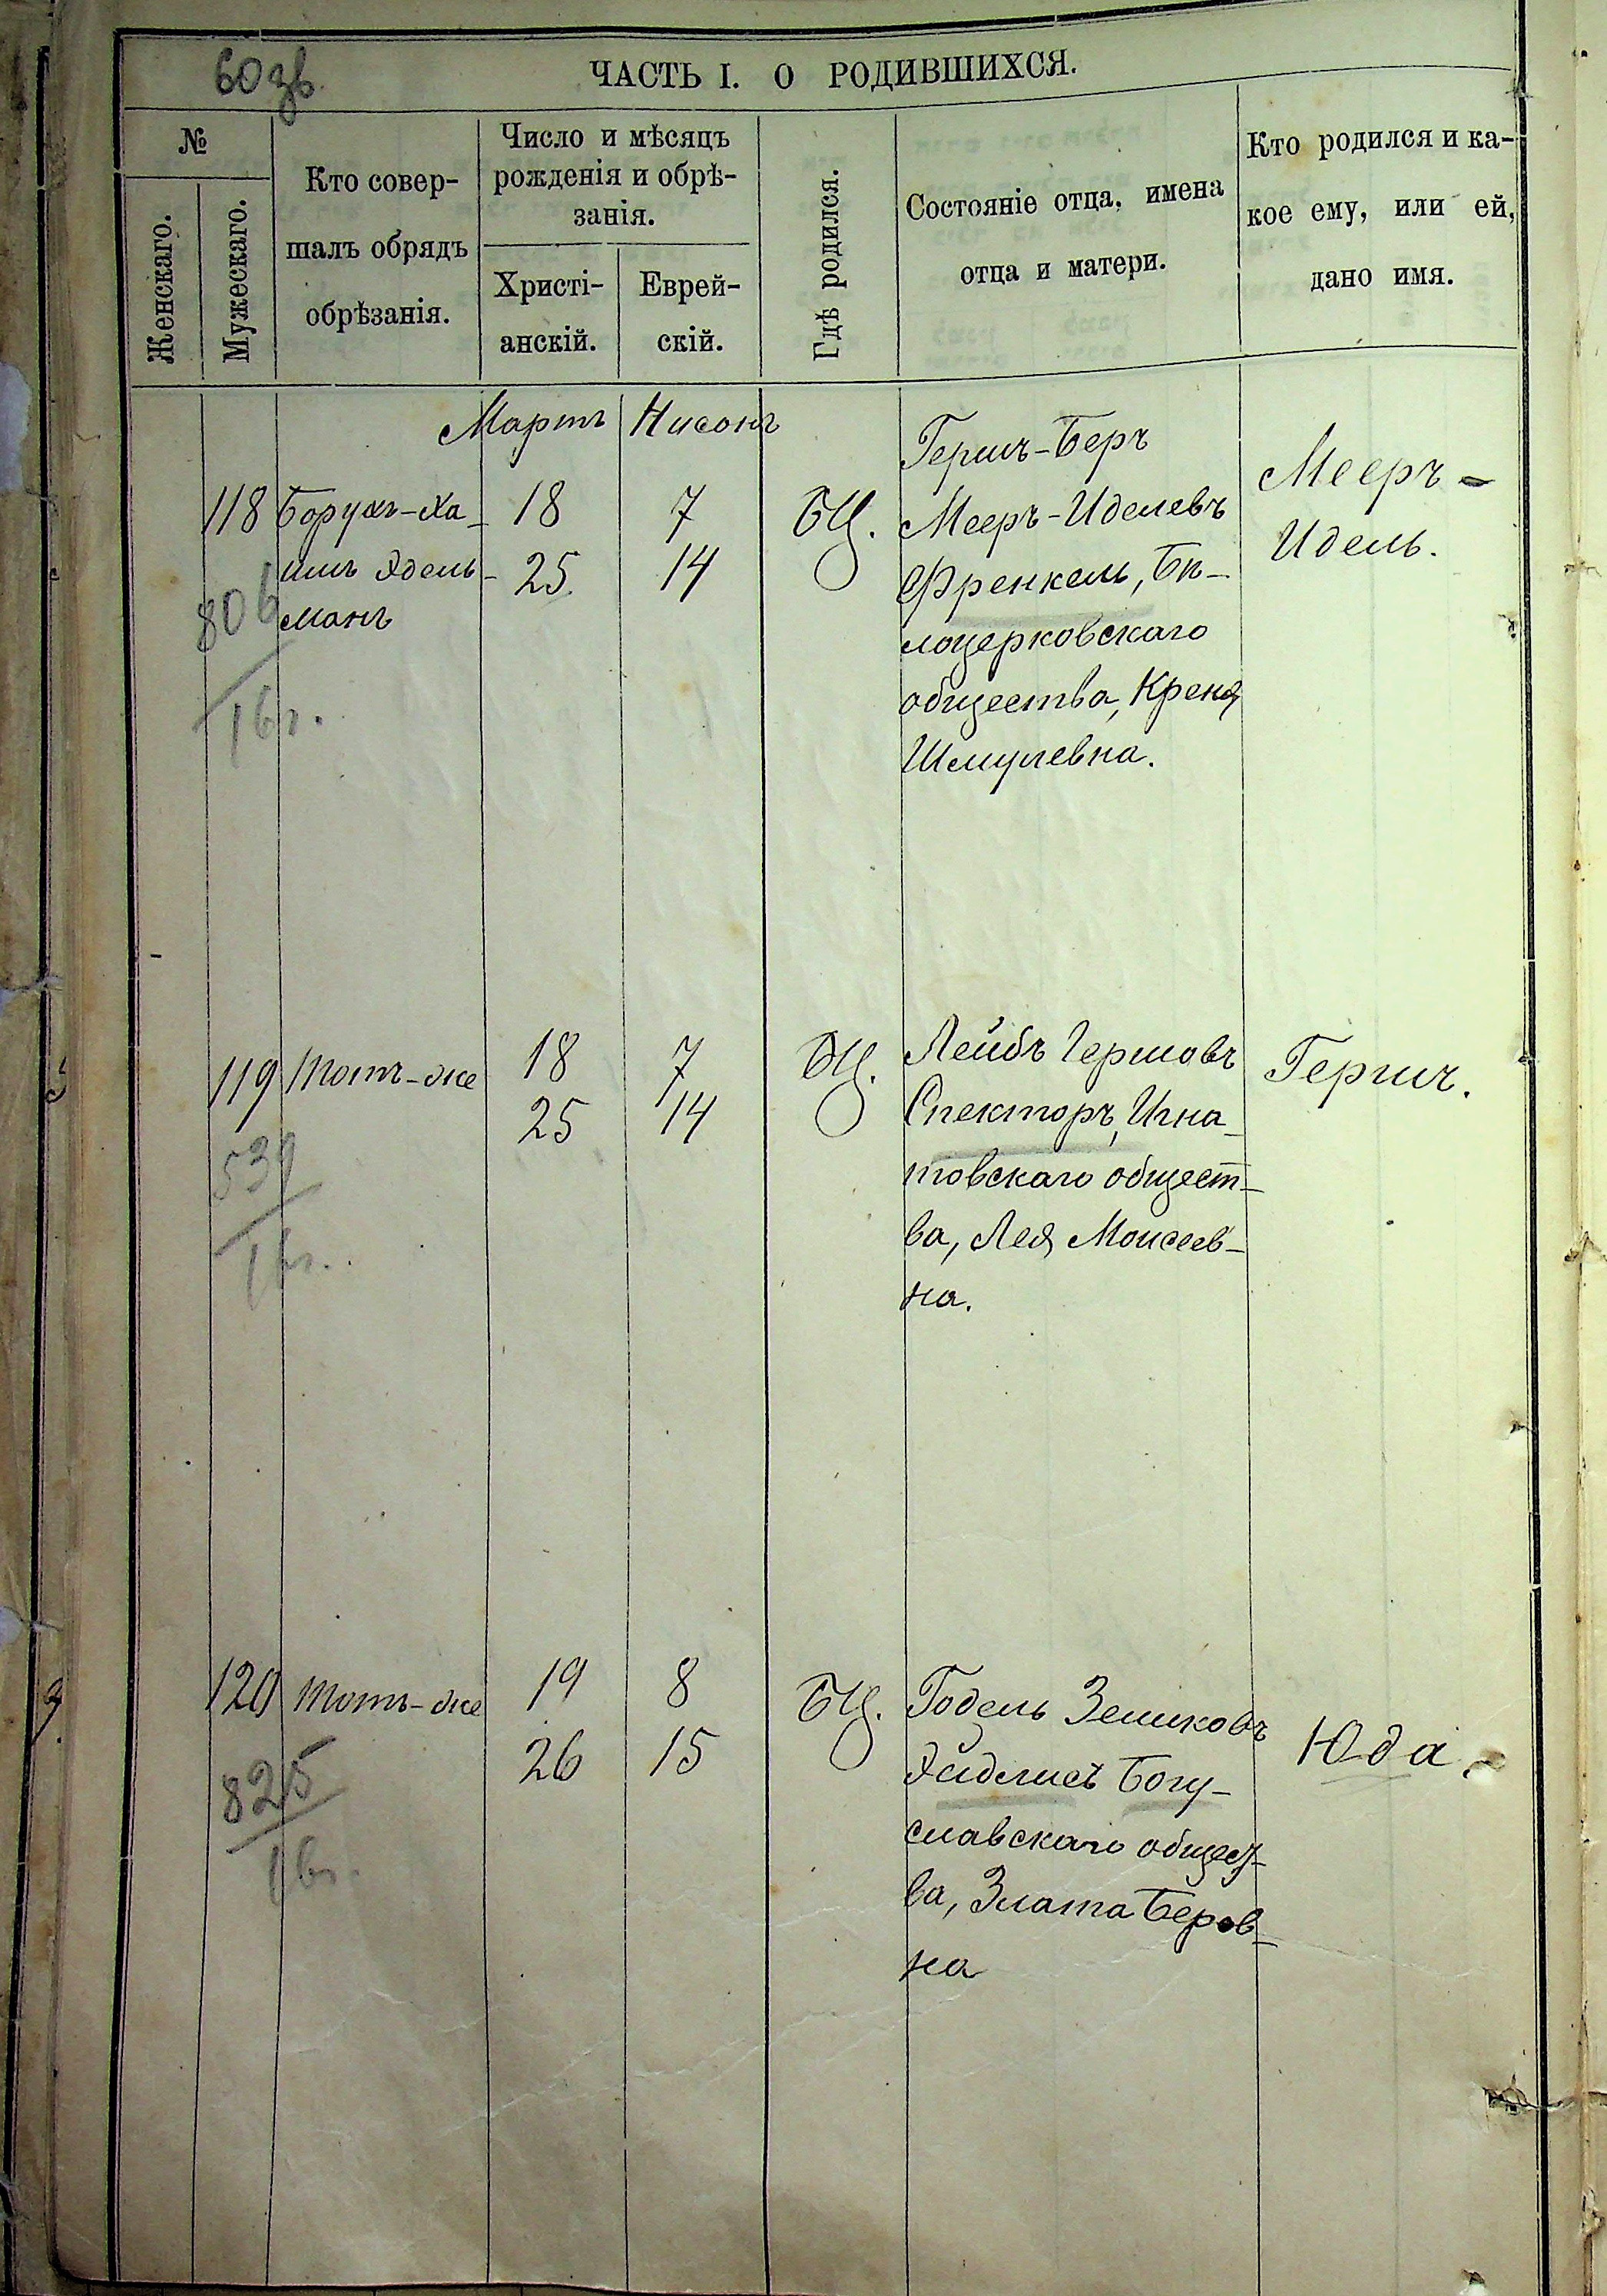 60 зв.
ЧАСТЬ I. О РОДИВШИХСЯ.
№
Женскаго.
Мужескаго.
Кто совер-
шалъ обрядъ
обрѣзанія.
Число и мѣсяцъ
рожденія и обрѣ-
занія.
Христі-
анскій.
Еврей-
скій.
Гдѣ родился.
Состояніе отца, имена
отца и матери.
Кто родился и ка-
кое ему, или ей,
дано имя.
Мартъ
Нисонъ
118
Борухъ-Ха-
имъ Эдель-
манъ
18
25
7
14
БЦ.
Гершъ-Беръ
Мееръ-Иделевъ
Френкель, Бѣ-
лоцерковскаго
общества, Креня
Шмулевна.
Мееръ-
Идель.
806
16г.
119
Тотъ-же
18
25
7
14
БЦ.
Лейбъ Гершовъ
Спекторъ, Игна-
товскаго общест-
ва, Лея Моисеев-
на.
Гершъ.
539
16г.
120
Тотъ-же
19
26
8
15
БЦ.
Годель Зеликовъ
Эйделисъ Богу-
славскаго общест-
ва, Злата Беров-
на
Юда.
825
16г.